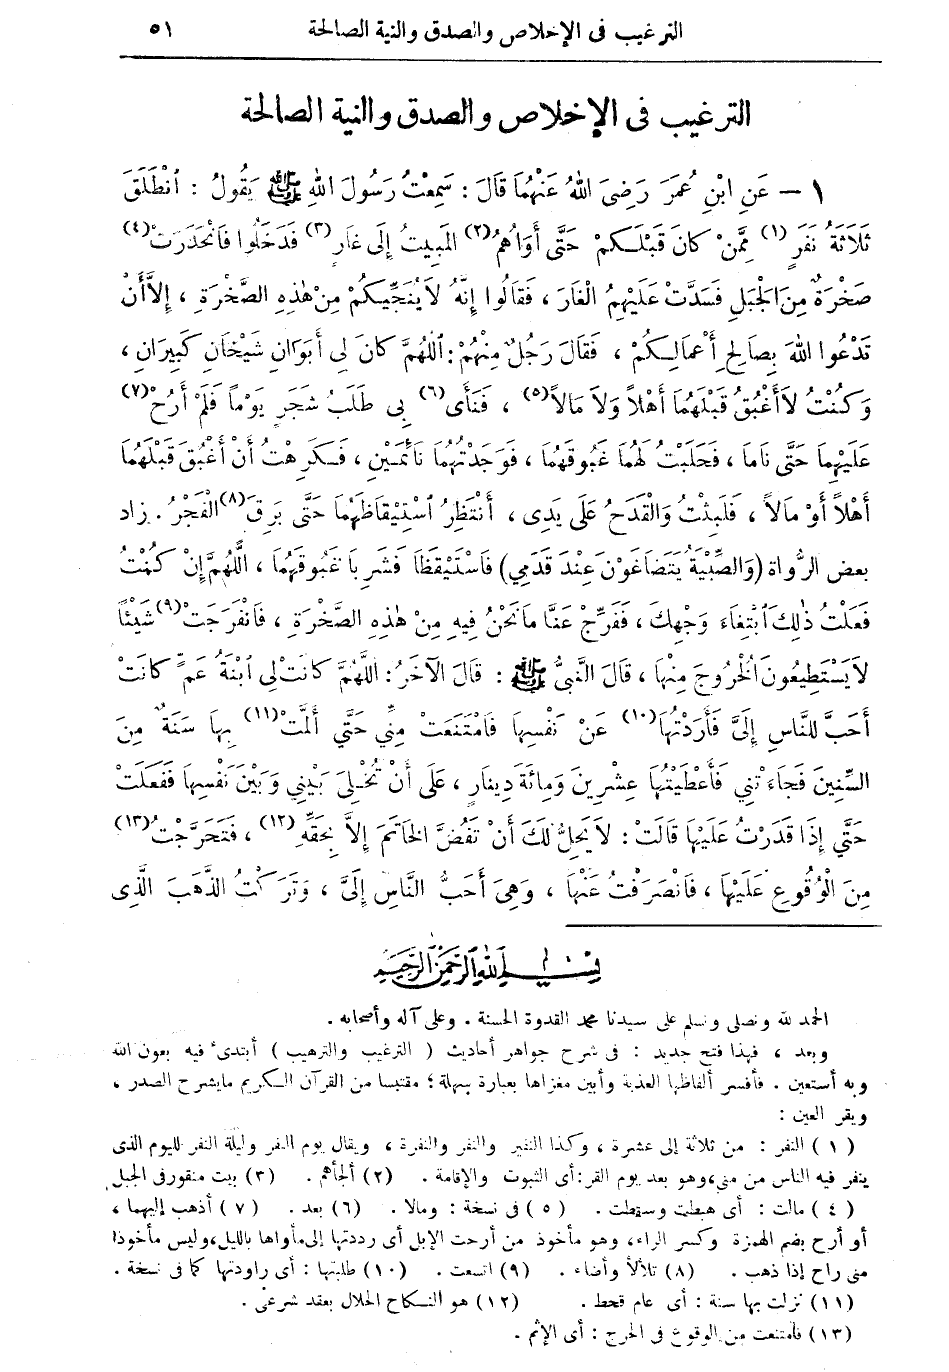 الترغيب فى الإخلاص والصدق والنية الصالحة ٥١
الترغيب فى الإخلاص والصدق والنية الصالحة
١ — عَنِ ابْنِ عُمَرَ رَضِىَ اللهُ عَنْهُمَا قَالَ : سَمِعْتُ رَسُولَ اللهِ ﷺ يَقُولُ : ٱنْطَلَقَ
ثَلَاثَةُ نَفَرٍ(١) مِمَّنْ كَانَ قَبْلَكُمْ حَتَّى أَوَاهُمُ(٢) المَبِيتُ إِلَى غَارٍ(٣) فَدَخَلُوا فَانْحَدَرَتْ(٤)
صَخْرَةٌ مِنَ الجَبَلِ فَسَدَّتْ عَلَيْهِمُ الْغَارَ ، فَقَالُوا إِنَّهُ لَا يُنَجِّيكُمْ مِنْ هٰذِهِ الصَّخْرَةِ ، إِلاَّ أَنْ
تَدْعُوا اللهَ بِصَالِحِ أَعْمَالِكُمْ ، فَقَالَ رَجُلٌ مِنْهُمْ : ٱللّٰهُمَّ كَانَ لِى أَبَوَانِ شَيْخَانِ كَبِيرَانِ ،
وَكُنْتُ لاَ أَغْبُقُ قَبْلَهُمَا أَهْلاً وَلاَ مَالاً(٥) ، فَنَأَى(٦) بِى طَلَبُ شَجَرٍ يَوْماً فَلَمْ أَرُحْ(٧)
عَلَيْهِمَا حَتَّى نَامَا ، فَحَلَبْتُ لَهُمَا غَبُوقَهُمَا ، فَوَجَدْتُهُمَا نَائِمَيْنِ ، فَكَرِهْتُ أَنْ أَغْبُقَ قَبْلَهُمَا
أَهْلاً أَوْ مَالاً ، فَلَبِثْتُ وَالْقَدَحُ عَلَى يَدِى ، أَنْتَظِرُ ٱسْتِيْقَاظَهُمَا حَتَّى بَرِقَ(٨) الْفَجْرُ . زاد
بعض الرُّواة (وَالصِّبْيَةُ يَتَضَاغَوْنَ عِنْدَ قَدَمِي) فَاسْتَيْقَظَا فَشَرِبَا غَبُوقَهُمَا ، اللَّهُمَّ إِنْ كُنْتُ
فَعَلْتُ ذٰلِكَ ٱبْتِغَاءَ وَجْهِكَ ، فَفَرِّجْ عَنَّا مَا نَحْنُ فِيهِ مِنْ هٰذِهِ الصَّخْرَةِ ، فَانْفَرَجَتْ(٩) شَيْئاً
لاَ يَسْتَطِيعُونَ الخُرُوجَ مِنْهَا ، قَالَ النَّبِىُّ ﷺ : قَالَ الآخَرُ : اللَّهُمَّ كَانَتْ لِى ٱبْنَةُ عَمٍّ كَانَتْ
أَحَبَّ لِلنَّاسِ إِلَىَّ فَأَرَدْتُهَا(١٠) عَنْ نَفْسِهَا فَامْتَنَعَتْ مِنِّي حَتَّي أَلَمَّتْ(١١) بِهَا سَنَةٌ مِنَ
السِّنِينَ فَجَاءَتْنِي فَأَعْطَيْتُهَا عِشْرِينَ وَمِائَةَ دِينَارٍ ، عَلَى أَنْ تُخْلِىَ بَيْنِي وَبَيْنَ نَفْسِهَا فَفَعَلَتْ
حَتَّي إِذَا قَدَرْتُ عَلَيْهَا قَالَتْ : لاَ يَحِلُّ لَكَ أَنْ تَفُضَّ الخَاتَمَ إِلاَّ بِحَقِّهِ(١٢) ، فَتَحَرَّجْتُ(١٣)
مِنَ الْوُقُوعِ عَلَيْهَا ، فَانْصَرَفْتُ عَنْهَا ، وَهِىَ أَحَبُّ النَّاسِ إِلَىَّ ، وَتَرَكْتُ الذَّهَبَ الَّذِى
بسم الله الرحمن الرحيم
الحمد لله ونصلى ونسلم على سيدنا محمد القدوة الحسنة . وعلى آله وأصحابه .
وبعد ، فهذا فتح جديد : فى شرح جواهر أحاديث ( الترغيب والترهيب ) أبتدىء فيه بعون الله
وبه أستعين . فأفسر ألفاظها العذبة وأبين مغزاها بعبارة سهلة ؛ مقتبسا من القرآن الكريم مايشرح الصدر ،
ويقر العين :
(١) النفر : من ثلاثة إلى عشرة ، وكذا النفير والنفر والنفرة ، ويقال يوم النفر وليلة النفر لليوم الذى
ينفر فيه الناس من منى،وهو بعد يوم القر:أى الثبوت والإقامة . (٢) ألجأهم . (٣) بيت منقور فى الجبل
(٤) مالت : أى هبطت وسقطت . (٥) فى نسخة : ومالا . (٦) بعد . (٧) أذهب إليهما ،
أو أرح بضم الهمزة وكسر الراء، وهو مأخوذ من أرحت الإبل أى رددتها إلى مأواها بالليل،وليس مأخوذا
من راح إذا ذهب . (٨) تلألأ وأضاء . (٩) اتسعت . (١٠) طلبتها : أى راودتها كما فى نسخة .
(١١) نزلت بها سنة : أى عام قحط . (١٢) هو النكاح الحلال بعقد شرعى .
(١٣) فامتنعت من الوقوع فى الحرج : أى الإثم .